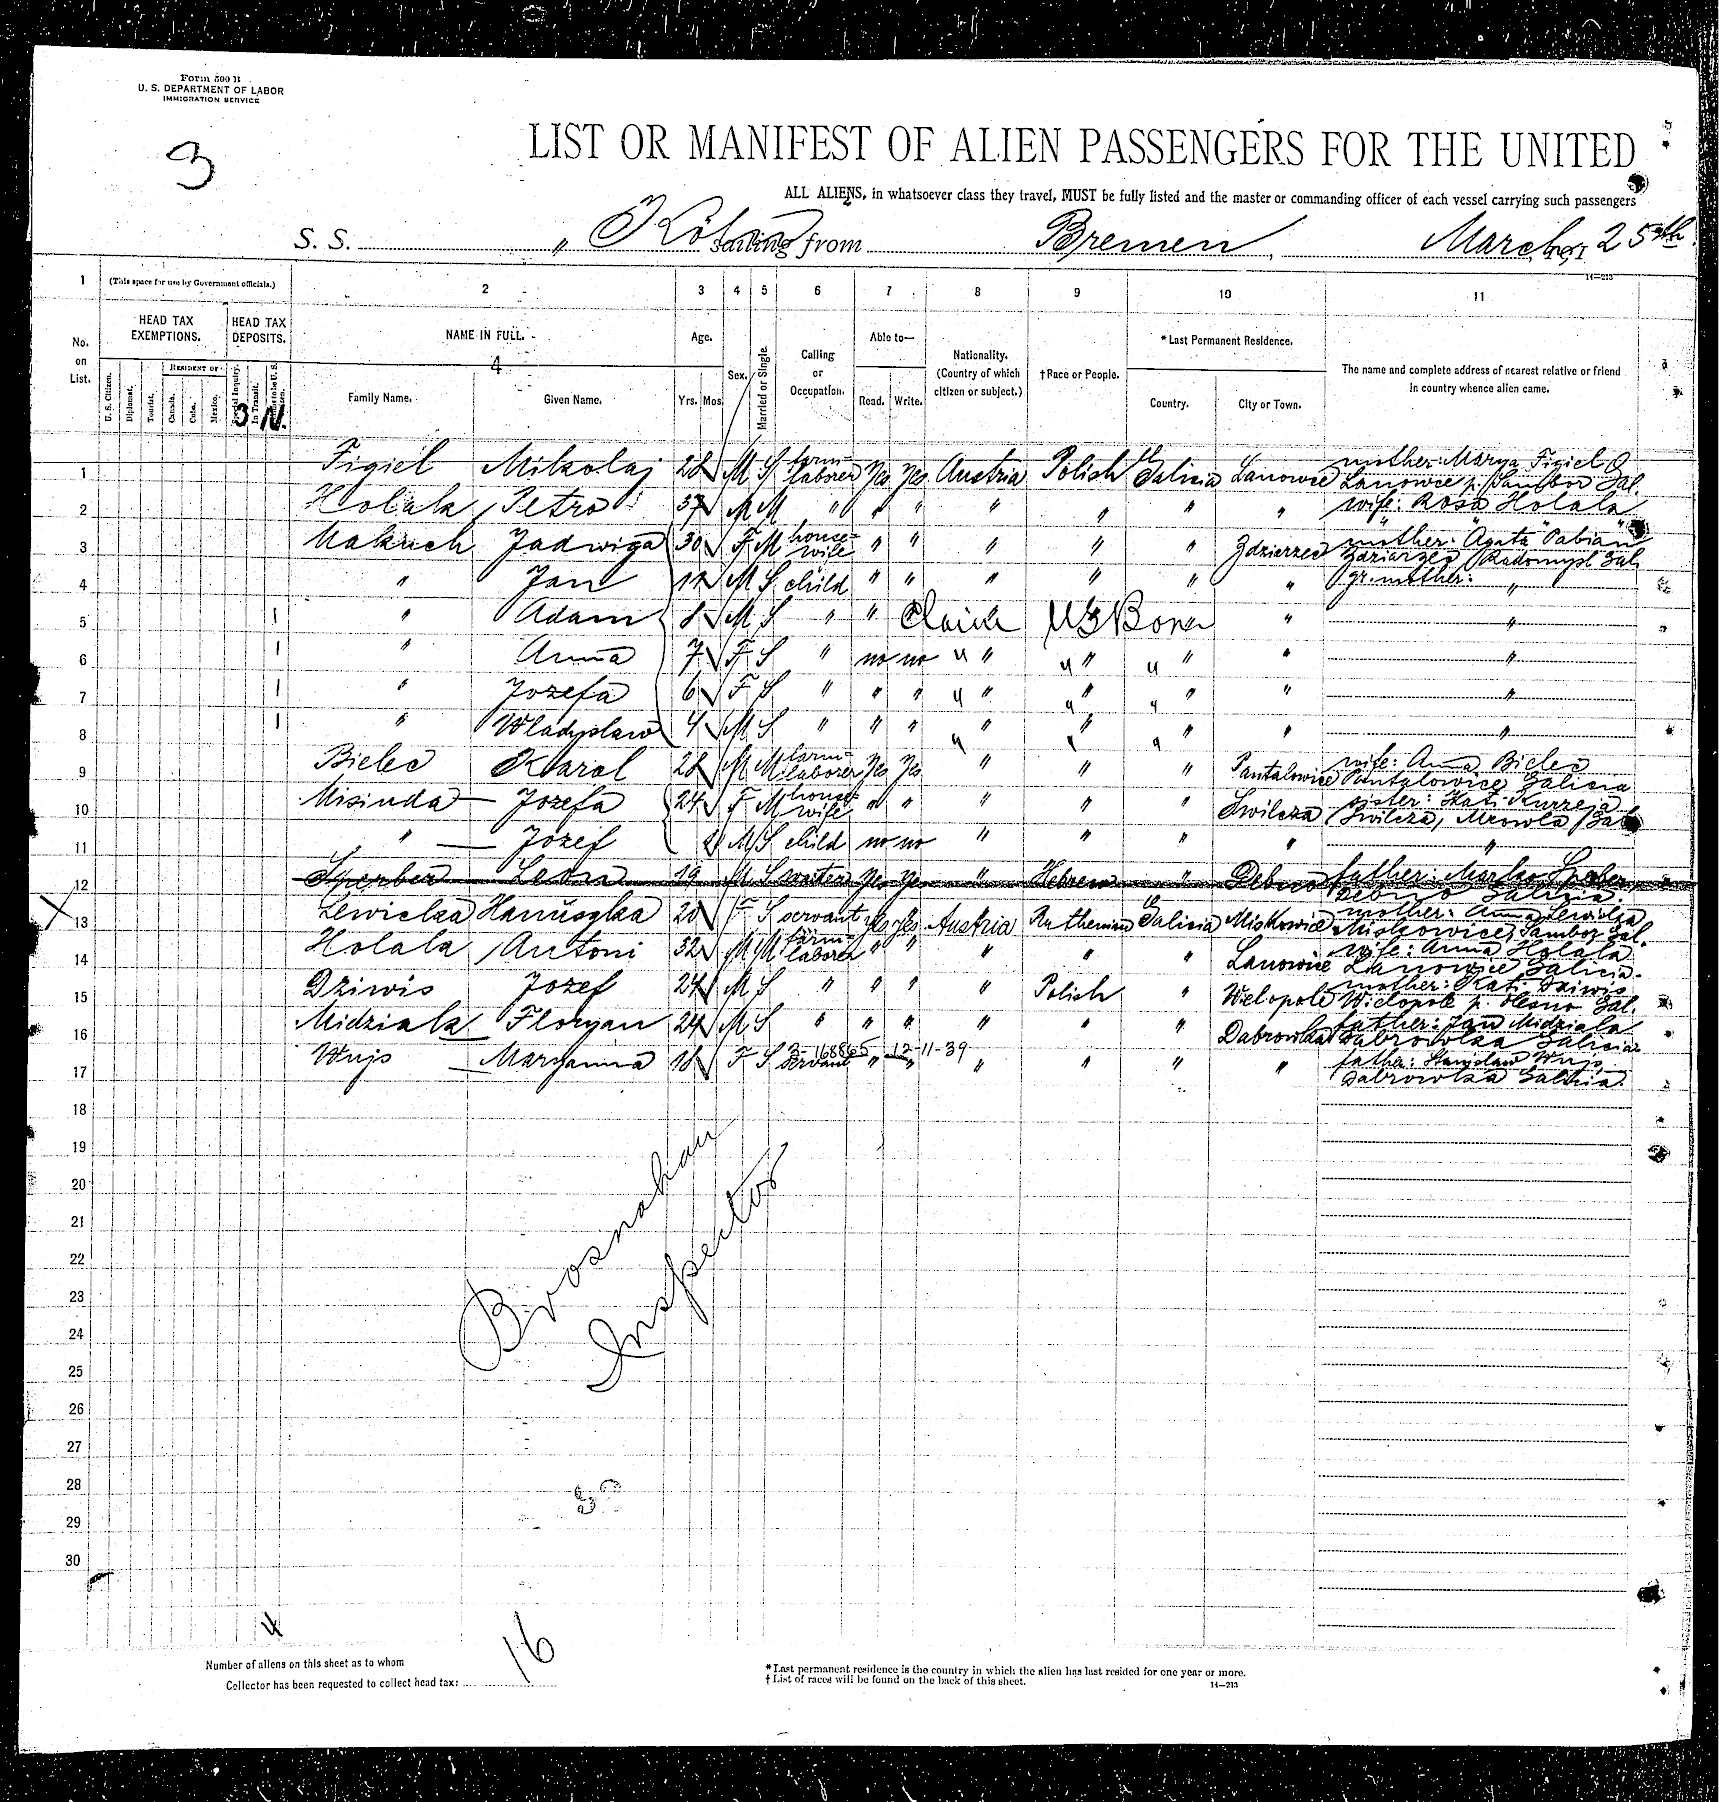 Form 500 B
U. S. DEPARTMENT OF LABOR
IMMIGRATION SERVICE
3
LIST OR MANIFEST OF ALIEN PASSENGERS FOR THE UNITED
ALL ALIENS, in whatsoever class they travel, MUST be fully listed and the master or commanding officer of each vessel carrying such passengers
S. S. "Köln sailing from Bremen, March 25th
14—213
1 (This space for use by Government officials.) 2 3 4 5 6 7 8 9 10 11
No. on List. HEAD TAX EXEMPTIONS. HEAD TAX DEPOSITS. NAME IN FULL. Age. Sex. Married or Single. Calling or Occupation. Able to— Nationality. (Country of which citizen or subject.) †Race or People. *Last Permanent Residence. The name and complete address of nearest relative or friend in country whence alien came.
4
U.S. Citizen. Diplomat. Tourist. RESIDENT OF Canada. Cuba. Mexico. Special Inquiry. In Transit. Family Name. Given Name. Yrs. Mos. Read. Write. Country. City or Town.
3 N.
1 Figiel Mikolaj 28 M S farm-laborer yes yes Austria Polish Galicia Lanowice mother: Marya Figiel Lanowice p. Sambor Gal.
2 Holala Petro 37 M M " " " " " " " wife: Rosa Holala
3 Makuch Jadwiga 30 F M house-wife " " " " " Zdziarzec mother: Agata Pabian Zdziarzec Radomysl Gal.
4 " Jan 11 M S child " " " " " " gr. mother: "
5 1 " Adam 8 M S " " Claims US Born " "
6 1 " Anna 7 F S " no no " " " " "
7 1 " Jozefa 6 F S " " " " " " " "
8 1 " Wladyslaw 4 M S " " " " " " " "
9 Bielec Karol 28 M M farm-laborer yes yes " " " Pantalowice wife: Anna Bielec Pantalowice Galicia
10 Misiuda Jozefa 24 F M house-wife " " " " " Swilcza sister: Kat. Kurzeja Swilcza, Mrowla Gal.
11 " Jozef 2 M S child no no " " " " "
12 Sperber Leon 19 M S waiter yes yes " Hebrew " Debno father: Marko Sperber Debno Galizia.
13 Lewicka Hanuszka 20 F S servant yes yes Austria Ruthenian Galicia Miskowice mother: Anna Lewicka Miskowice, Sambor Gal.
14 Holala Antoni 32 M M farm-laborer " " " " " Lanowice wife: Anna Holala Lanowice Galicia.
15 Dziwis Jozef 24 M S " " " " Polish " Wielopole mother: Kat. Dziwis Wielopole p. Olesno Gal.
16 Midziala Floryan 24 M S " " " " " " Dabrowka father: Jan Midziala Dabrowka Galicia
3-168865 12-11-39
17 Wujs Maryanna 18 F S servant " " " " " " father: Stanislaw Wujs Dabrowka Galizia.
18
19
20
21
22
23
24
25
26
27
28
29
30
Brosnahan
Inspector
4
16
Number of aliens on this sheet as to whom
Collector has been requested to collect head tax:
*Last permanent residence is the country in which the alien has last resided for one year or more.
†List of races will be found on the back of this sheet.
14—213